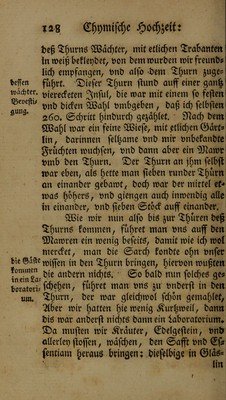 128 Chymische Hochzeit:
deß Thurns Wächter, mit etlichen Trabanten
in weiß bekleydet, von dem wurden wir freund-
lich empfangen, vnd also dem Thurn zuge-
führt. Dieser Thurn stund auff einer gantz
viereckten Insul, die war mit einem so festen
vnd dicken Wahl vmbgeben, daß ich selbsten
260. Schritt hindurch gezählet. Nach dem
Wahl war ein feine Wiese, mit etlichen Gärt-
lin, darinnen seltzame vnd mir vnbekandte
Früchten wuchsen, vnd dann aber ein Mawr
vmb den Thurn. Der Thurn an jhm selbst
war eben, als hette man sieben runder Thürn
an einander gebawt, doch war der mittel et-
was höhers, vnd giengen auch inwendig alle
in einander, vnd sieben Stöck auff einander.
Wie wir nun also bis zur Thüren deß
Thurns kommen, führet man vns auff den
Mawren ein wenig beseits, damit wie ich wol
mercket, man die Särch kondte ohn vnser
wissen in den Thurn bringen, hiervon wusten
die andern nichts. So bald nun solches ge-
schehen, führet man vns zu vnderst in den
Thurn, der war gleichwol schön gemahlet,
Aber wir hatten hie wenig Kurtzweil, dann
dis war anderst nichts dann ein Laboratorium.
Da musten wir Kräuter, Edelgestein, vnd
allerley stossen, wäschen, den Safft vnd Es-
sentiam heraus bringen: dieselbige in Gläs-
lin
dessen
wächter.
Bevesti-
gung.
die Gäste
kommen
in ein La-
boratori-
um.